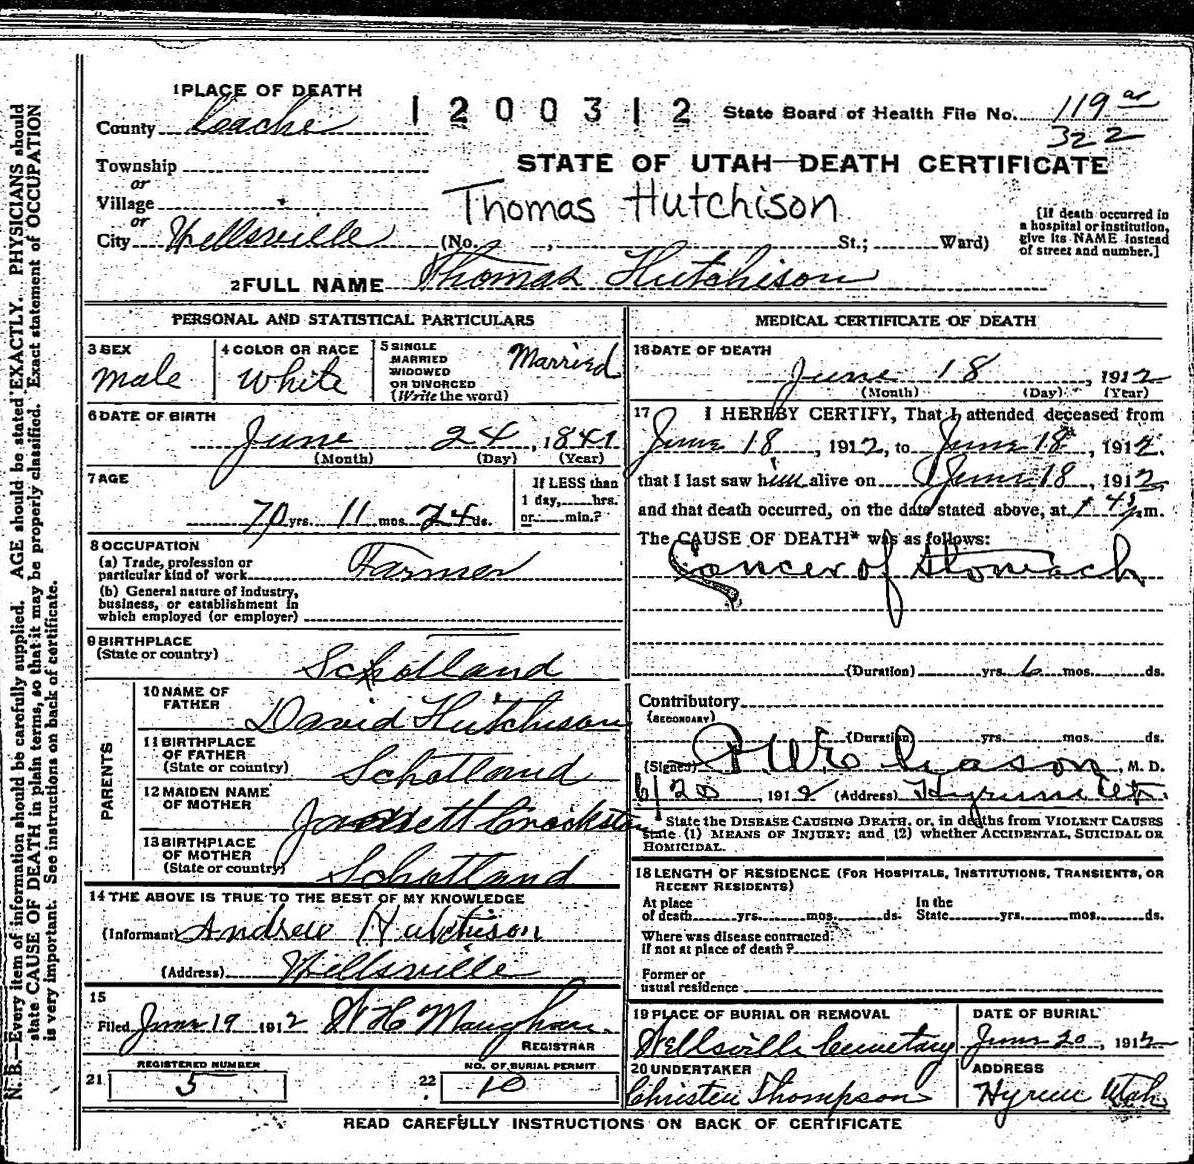 1 PLACE OF DEATH
County Cache
1200312
State Board of Health File No. 119 ar
322
STATE OF UTAH—DEATH CERTIFICATE
Township
or
Village
or
City Wellsville
Thomas Hutchison
(No. , St.; Ward)
[If death occurred in
a hospital or institution,
give its NAME instead
of street and number.]
2 FULL NAME Thomas Hutchison
PERSONAL AND STATISTICAL PARTICULARS
3 SEX
male
4 COLOR OR RACE
White
5 SINGLE
MARRIED
WIDOWED
OR DIVORCED
(Write the word)
Married
6 DATE OF BIRTH
June 24, 1841
(Month) (Day) (Year)
7 AGE
70 yrs. 11 mos. 24 ds.
If LESS than
1 day, hrs.
or min.?
8 OCCUPATION
(a) Trade, profession or
particular kind of work
Farmer
(b) General nature of industry,
business, or establishment in
which employed (or employer)
9 BIRTHPLACE
(State or country)
Schotland
PARENTS
10 NAME OF
FATHER
David Hutchison
11 BIRTHPLACE
OF FATHER
(State or country)
Schotland
12 MAIDEN NAME
OF MOTHER
13 BIRTHPLACE
OF MOTHER
(State or country)
Schotland
14 THE ABOVE IS TRUE TO THE BEST OF MY KNOWLEDGE
(Informant) Andrew Hutchison
(Address) Wellsville
15
Filed June 19 1912 W H Maughan.
REGISTRAR
REGISTERED NUMBER
21 5
NO. OF BURIAL PERMIT
22 10
MEDICAL CERTIFICATE OF DEATH
16 DATE OF DEATH
June 18, 1912
(Month) (Day) (Year)
17 I HEREBY CERTIFY, That I attended deceased from
June 18, 1912, to June 18, 1912.
that I last saw him alive on June 18, 1912
and that death occurred, on the date stated above, at 1 45 p.m.
The CAUSE OF DEATH* was as follows:
Cancer of Stomach
(Duration) yrs. 6 mos. ds.
Contributory
(SECONDARY)
(Duration) yrs. mos. ds.
(Signed) , M. D.
6/20, 1912 (Address) Hyrum Ut.
* State the DISEASE CAUSING DEATH, or, in deaths from VIOLENT CAUSES
state (1) MEANS OF INJURY; and (2) whether ACCIDENTAL, SUICIDAL OR
HOMICIDAL.
18 LENGTH OF RESIDENCE (FOR HOSPITALS, INSTITUTIONS, TRANSIENTS, OR
RECENT RESIDENTS)
At place
of death yrs. mos. ds.
In the
State yrs. mos. ds.
Where was disease contracted
if not at place of death?
Former or
usual residence
19 PLACE OF BURIAL OR REMOVAL
Wellsville Cemetary
DATE OF BURIAL
June 20, 1912
20 UNDERTAKER
Christen Thompson
ADDRESS
Hyrum Utah
READ CAREFULLY INSTRUCTIONS ON BACK OF CERTIFICATE
N. B.—Every item of information should be carefully supplied. AGE should be stated EXACTLY. PHYSICIANS should
state CAUSE OF DEATH in plain terms, so that it may be properly classified. Exact statement of OCCUPATION
is very important. See instructions on back of certificate.